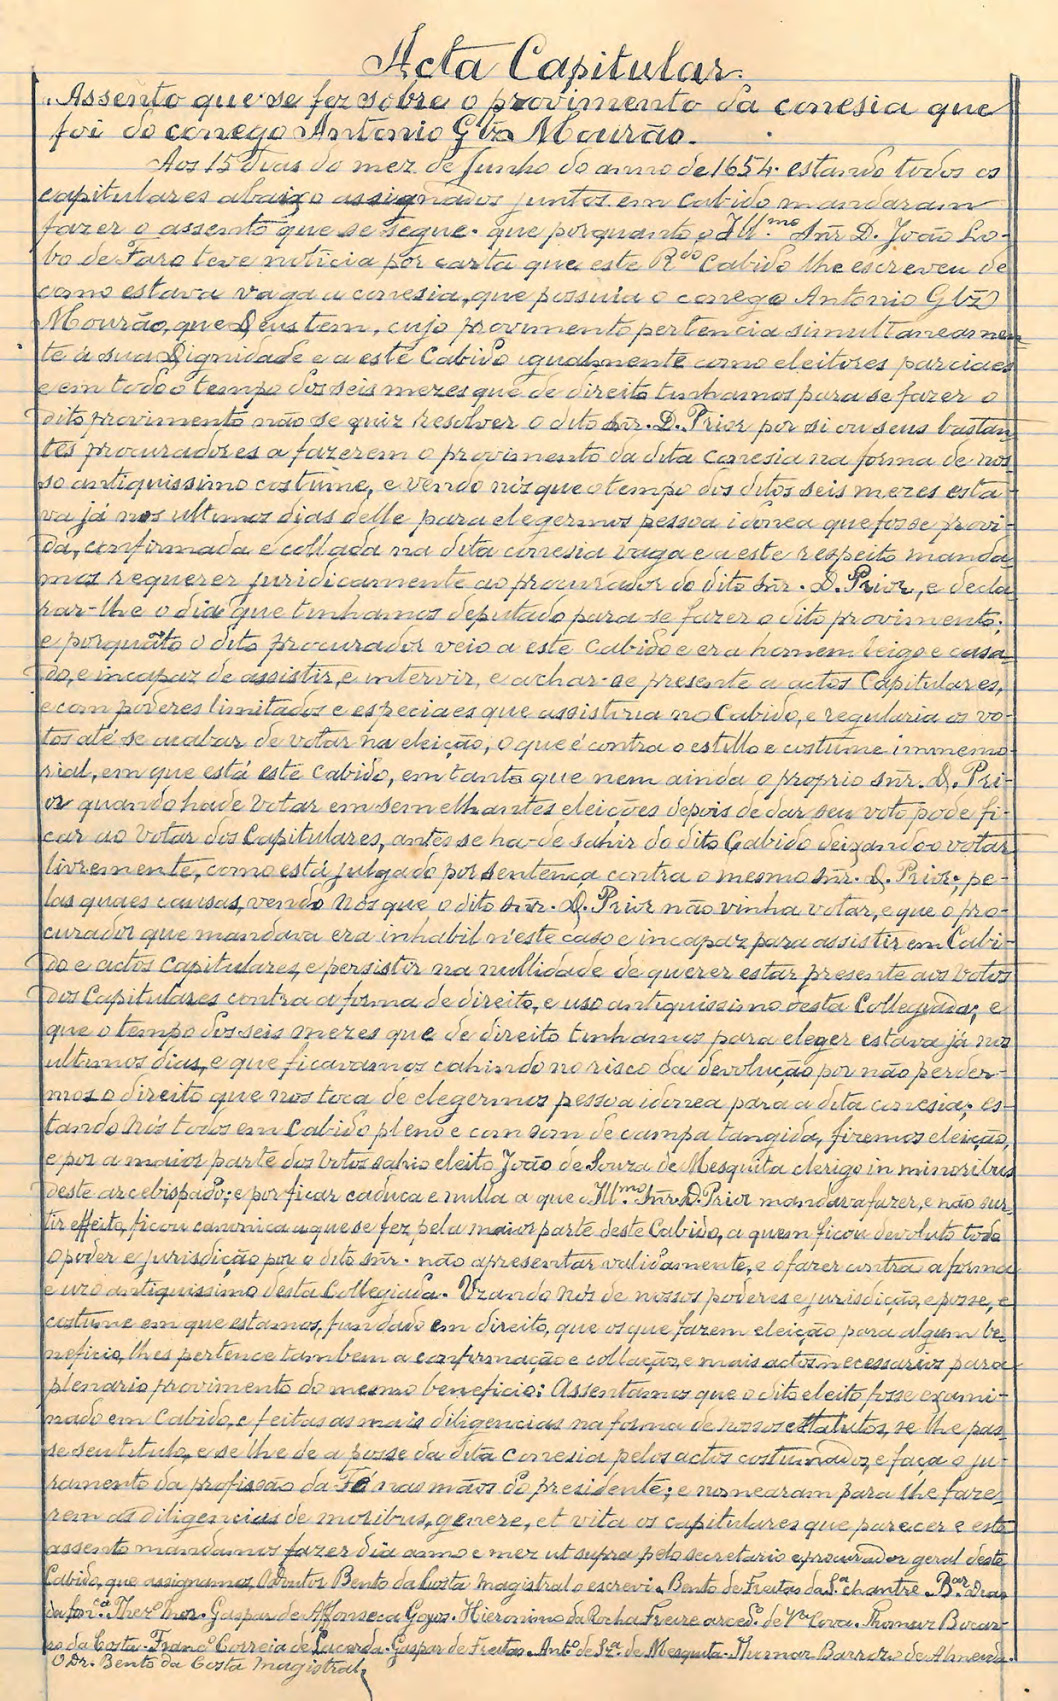 Acta Capitular.
"Assento que se fez sobre o provimento da conesia que
foi do conego Antonio Glz̃ Mourão.
Aos 15 dias do mez de Junho do anno de 1654. estando todos os
capitulares abaixo assignados juntos em cabido mandaram
fazer o assento que se segue. que porquanto o Ill.mo Sñr D. João Lo-
bo de Faro teve noticia por carta que este R.do Cabido lhe escreveu de
como estava vaga a conesia, que possuia o conego Antonio Glz̃
Mourão, que Deus tem, cujo provimento pertencia simultaneamen-
te á sua Dignidade e a este Cabido igualmente como eleitores parciaes
e em todo o tempo dos seis mezes que de direito tinhamos para se fazer o
dito provimento não se quiz resolver o dito sñr. D. Prior por si ou seus bastan-
tes procuradores a fazerem o provimento da dita conesia na forma de nos-
so antiquissimo costume, e vendo nós que o tempo dos ditos seis mezes esta-
va já nos ultimos dias delle para elegermos pessoa idonea que fosse provi-
da, confirmada e collada na dita conesia vaga e a este respeito manda-
mos requerer juridicamente ao procurador do dito sñr. D. Prior, e decla-
rar-lhe o dia que tinhamos deputado para se fazer o dito provimento;
e porquãto o dito procurador veio a este Cabido e era homem leigo e casa-
do, e incapaz de assistir, e intervir, e achar-se presente a actos Capitulares,
e com poderes limitados e especiaes que assistiria no Cabido, e regularia os vo-
tos até se acabar de votar na eleição, o que é contra o estillo e costume immemo-
rial, em que está este Cabido, em tanto que nem ainda o proprio sñr. D. Pri-
or quando hade votar em semelhantes eleições depois de dar seu voto pode fi-
car ao votar dos Capitulares, antes se ha-de sahir do dito Cabido deixando-o votar
livremente, como está julgado por sentença contra o mesmo sñr. D. Prior; pe-
las quaes causas, vendo nós que o dito sñr. D. Prior não vinha votar, e que o pro-
curador que mandava era inhabil n'este caso e incapaz para assistir em Cabi-
do e actos Capitulares, e persistir na nullidade de querer estar presente aos votos
dos Capitulares contra a forma de direito, e uso antiquissimo desta Collegiada; e
que o tempo dos seis mezes que de direito tinhamos para eleger estava já nos
ultimos dias, e que ficavamos cahindo no risco da devolução por não perder-
mos o direito que nos toca de elegermos pessoa idonea para a dita conesia; es-
tando nós todos em Cabido pleno e com som de campa tangida, fizemos eleição,
e por a maior parte dos votos sahio eleito João de Souza de Mesquita clerigo in minoribus
deste arcebispado; e por ficar caduca e nulla a que o Ill.mo Sñr. D. Prior mandara fazer, e não sur-
tir effeito, ficou canonica a que se fez pela maior parte deste Cabido, a quem ficou devoluto todo
o poder e jurisdição por o dito sñr. não apresentar validamente, e o fazer contra a forma
e uzo antiquissimo desta Collegiada. Uzando nós de nossos poderes e jurisdição, e posse, e
costume em que estamos, fundado em direito, que os que fazem eleição para algum be-
neficio, lhes pertence tambem a confirmação e collação, e mais actos necessarios para
plenario provimento do mesmo beneficio; Assentamos que o dito eleito fosse exami-
nado em Cabido, e feitas as mais diligencias na forma de nosso estatutos, se lhe pas-
se seu titulo, e se lhe de a posse da dita conesia pelos actos costumados, e faça o ju-
ramento da profissão da Fé nas mãos do presidente; e nomearam para lhe faze-
rem as diligencias de moribus, genere, et vita os capitulares que parecer e este
assento mandamos fazer dia anno e mez ut supra pelo secretario e procurador geral deste
Cabido, que assignamos, O Doutor Bento da Costa magistral o escrevi. Bento de Freitas da S.a chantre. B.ar Dias
da Fon.ca Thez.o mor. Gaspar de Affonseca Goyos. Hieronimo da Rocha Freire arced.o de V.a Cova. Thomar Bocar-
ro da Costa. Franc.o Correia de Lacerda. Gaspar de Freitas. Ant.o de Sz.a de Mesquita. Thomar Barrozo de Almeida.
O Dr. Bento da Costa magistral,